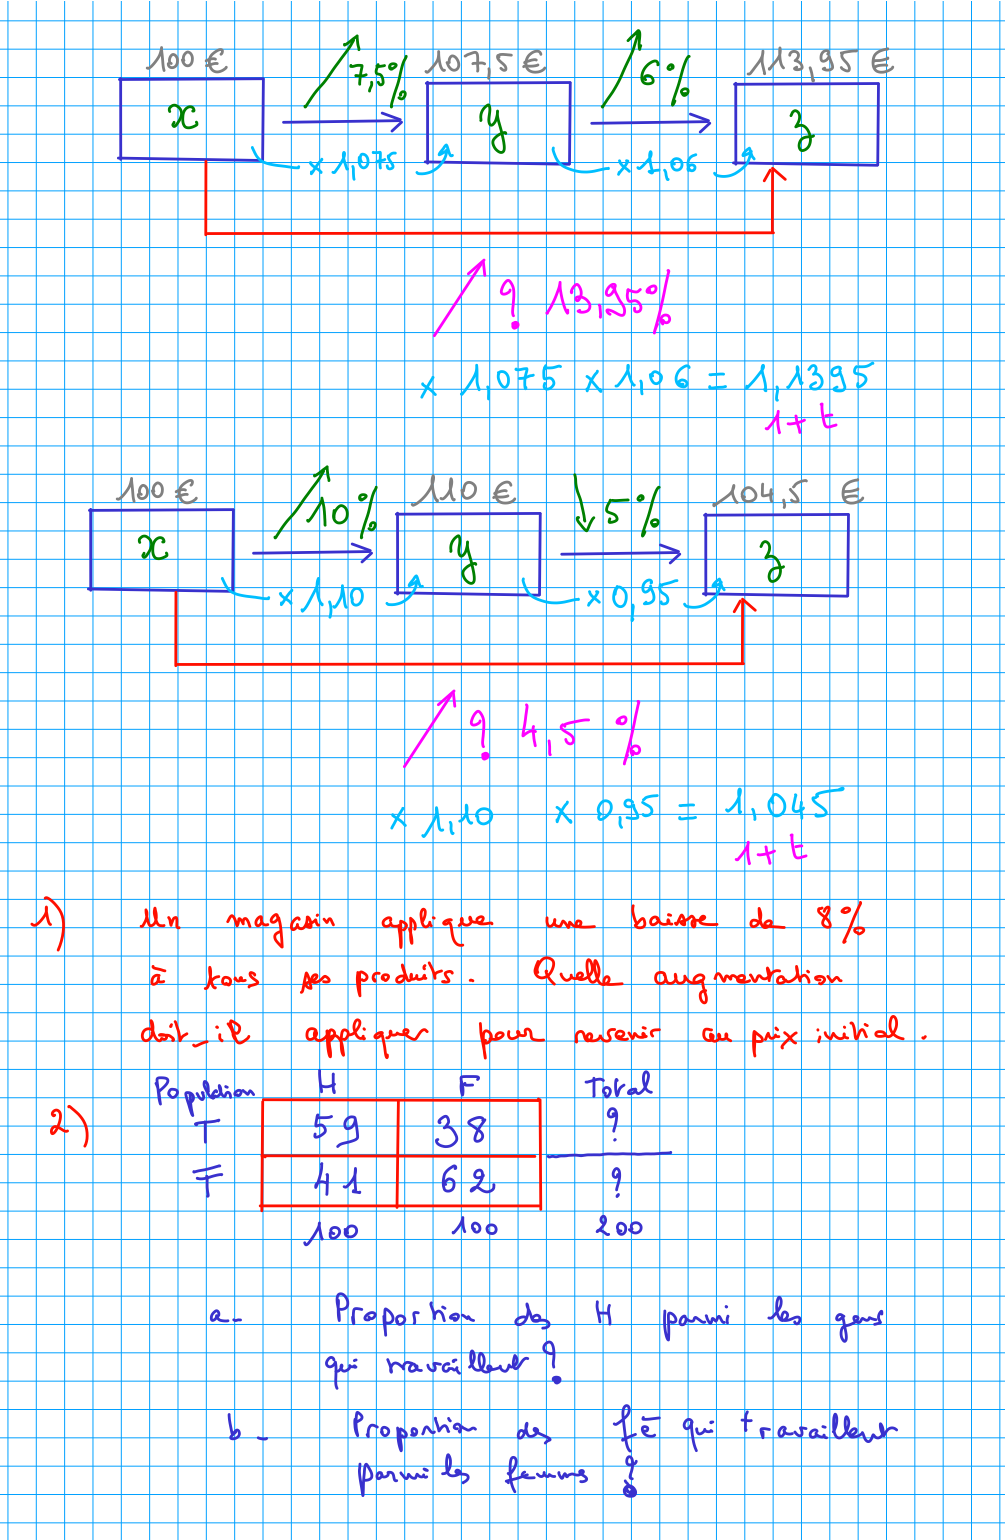 100 € 7,5% 107,5 € 6% 113,95 €
x y z
× 1,075 × 1,06
? 13,95%
× 1,075 × 1,06 = 1,1395
1 + t
100 € 10% 110 € 5% 104,5 €
x y z
× 1,10 × 0,95
? 4,5 %
× 1,10 × 0,95 = 1,045
1 + t
1) Un magasin applique une baisse de 8%
à tous ses produits. Quelle augmentation
doit-il appliquer pour revenir au prix initial.
Population H F Total
2) T 59 38 ?
T̅ 41 62 ?
100 100 200
a- Proportion des H parmi les gens
qui travaillent ?
b- Proportion des fē qui travaillent
parmi les femmes ?